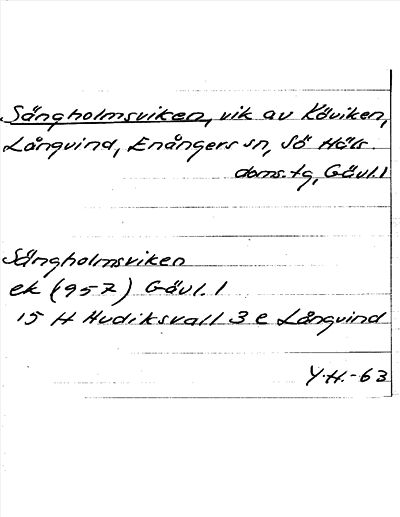 Sångholmsviken, vik av Köviken,
Långvind, Enångers sn, Sö Häls.
doms.tg, Gävl.l
Sångholmsviken
ek (1957) Gävl.l
15 H Hudiksvall 3 e Långvind
Y.H.-63